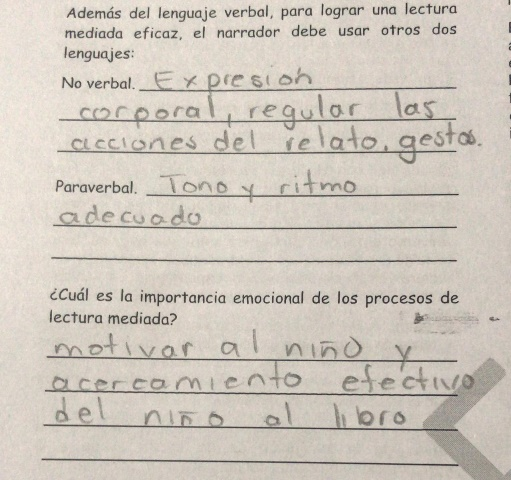 Además del lenguaje verbal, para lograr una lectura
mediada eficaz, el narrador debe usar otros dos
lenguajes:
No verbal. Expresion
corporal, regular las
acciones del relato, gestos.
Paraverbal. Tono y ritmo
adecuado
¿Cuál es la importancia emocional de los procesos de
lectura mediada?
motivar al niño y
acercamiento efectivo
del niño al libro